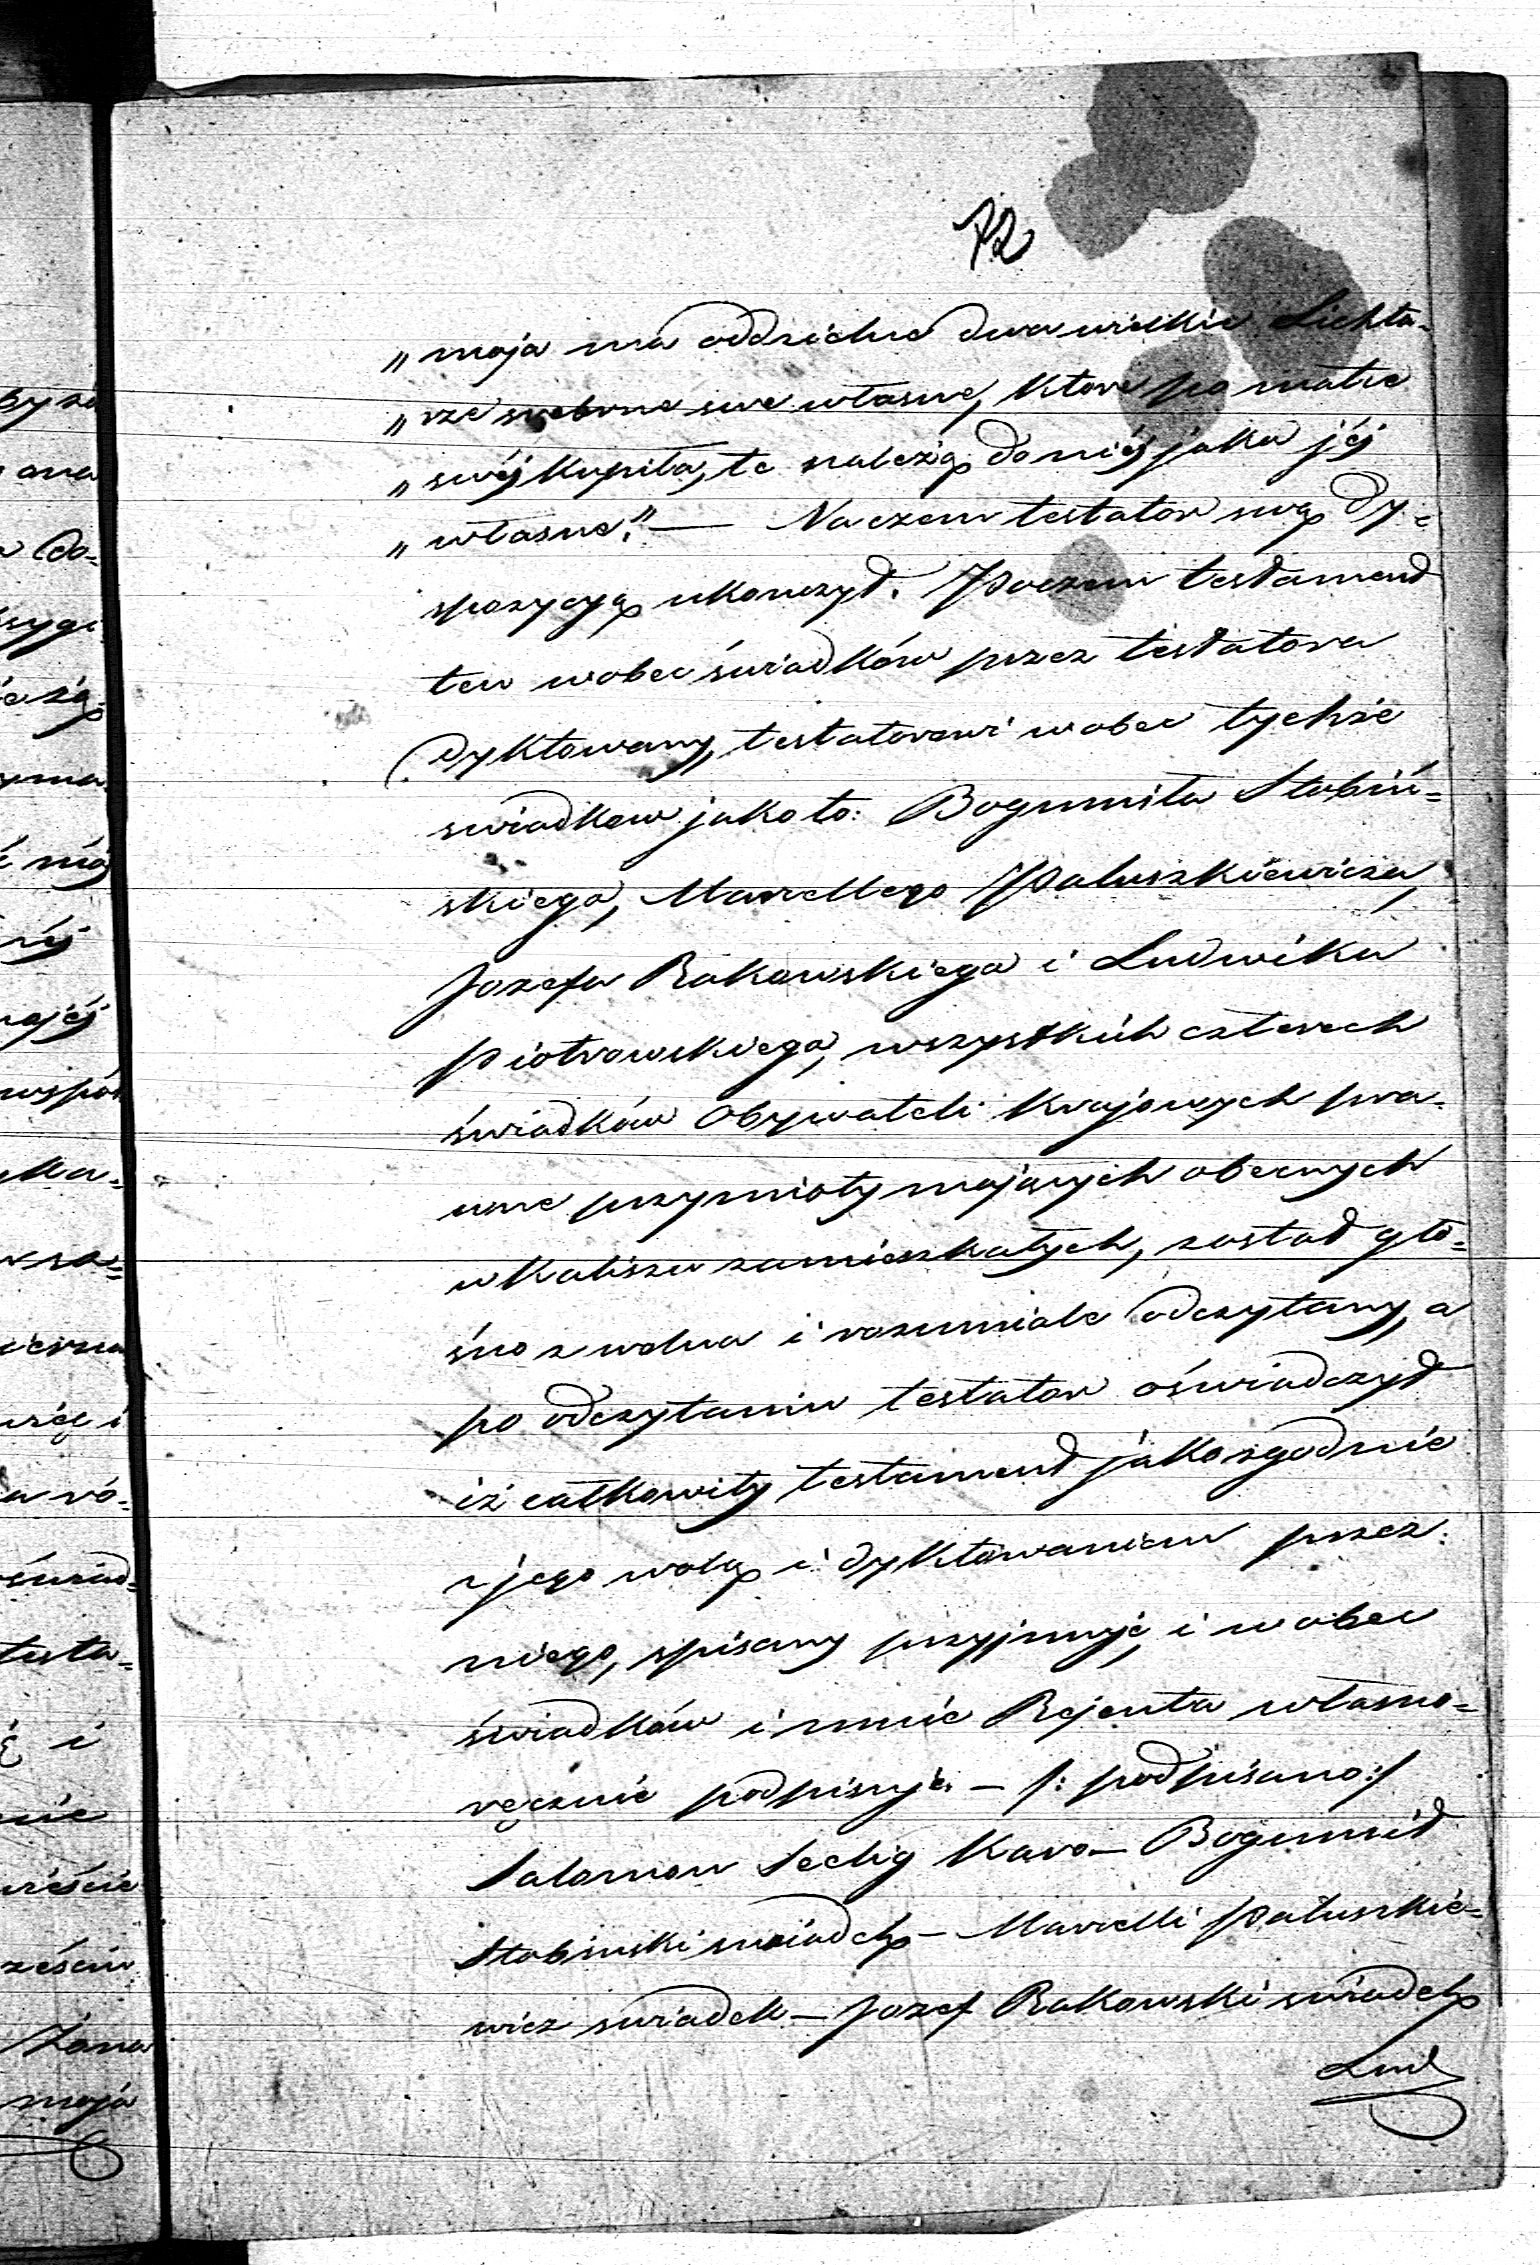 72
„moja ma oddzielne dwa wielkie Lichta-
„rze srebrne swe własne, które po matce
„swéj kupiła, te należą do niéj jako jéj
„własne.” — Na czem testator swą dy-
spozycyą ukonczył. Poczem testament
ten wobec świadków przez testatora
dyktowany, testatorowi wobec tychże
swiadkow jako to: Bogumiła Słobiń=
skiego, Marcellego Paluszkiewicza,
Jozefa Rakowskiego i Ludwika
Piotrowskiego, wszystkich czterech
świadków Obywateli Krajowych pra-
wne przymioty mających obecnych
w Kaliszu zamieszkałych, został gło=
śno z wolna i rozumiale odczytany, a
po odczytaniu testator oświadczył
iż całkowity testament jako zgodnie
z jego wolą i dyktowaniem przez
niego, spisany przyjmuje, i wobec
świadków i mnie Rejenta własno=
ręcznie podpisuje. — /: podpisano :/
Salomon Seelig Karo — Bogumił
Słobinski swiadek — Marcelli Paluszkie=
wicz swiadek — Jozef Rakowski swiadek
Lud